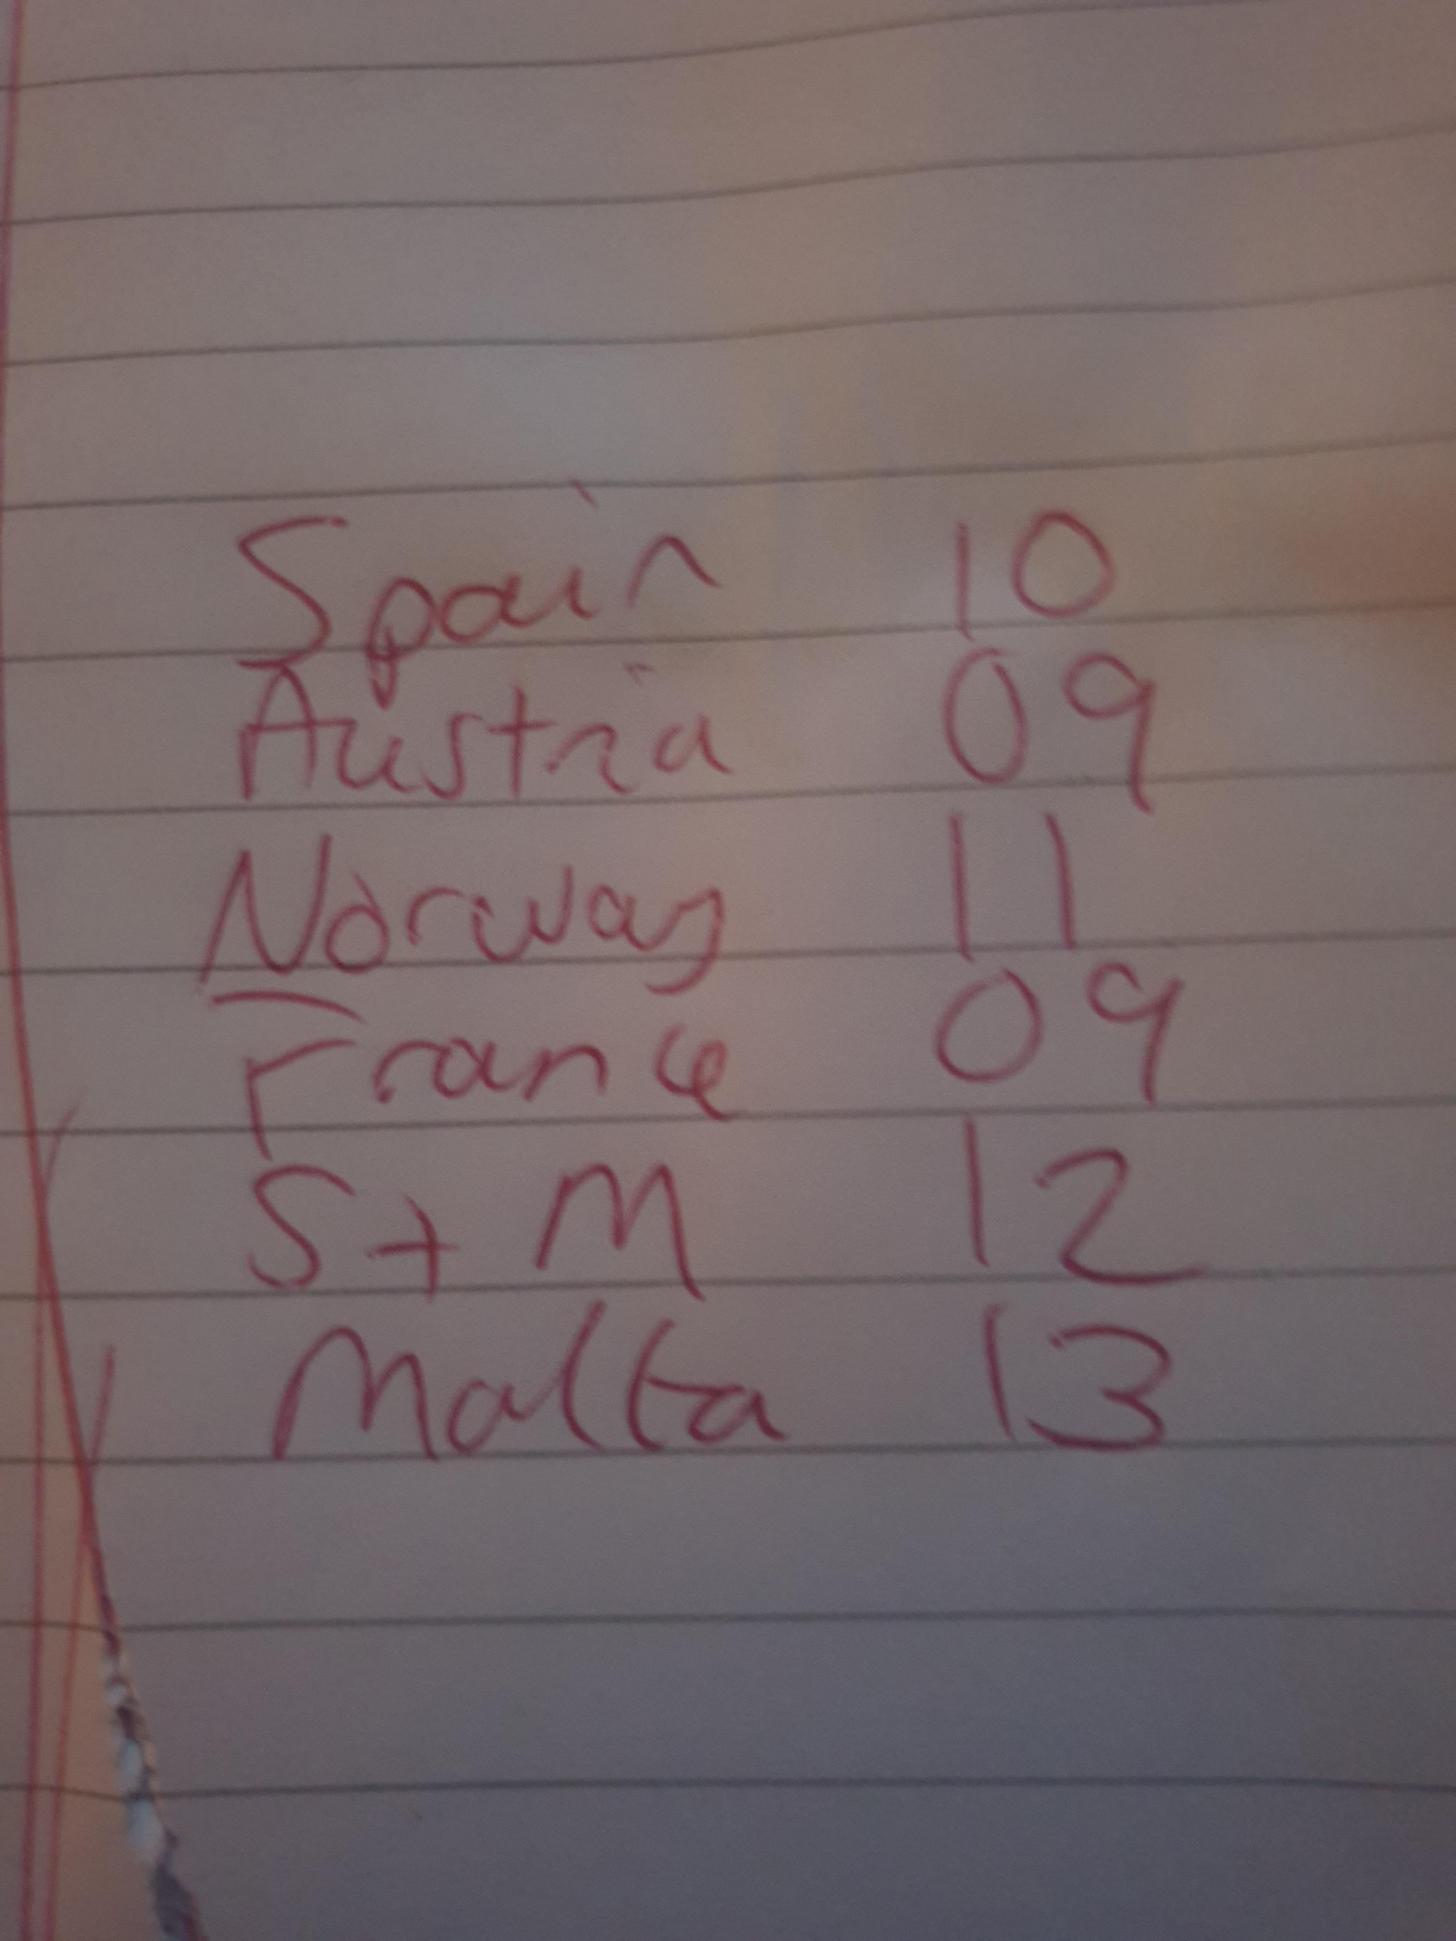 Spain 10
Austria 09
Norway 11
France 09
S + M 12
Malta 13